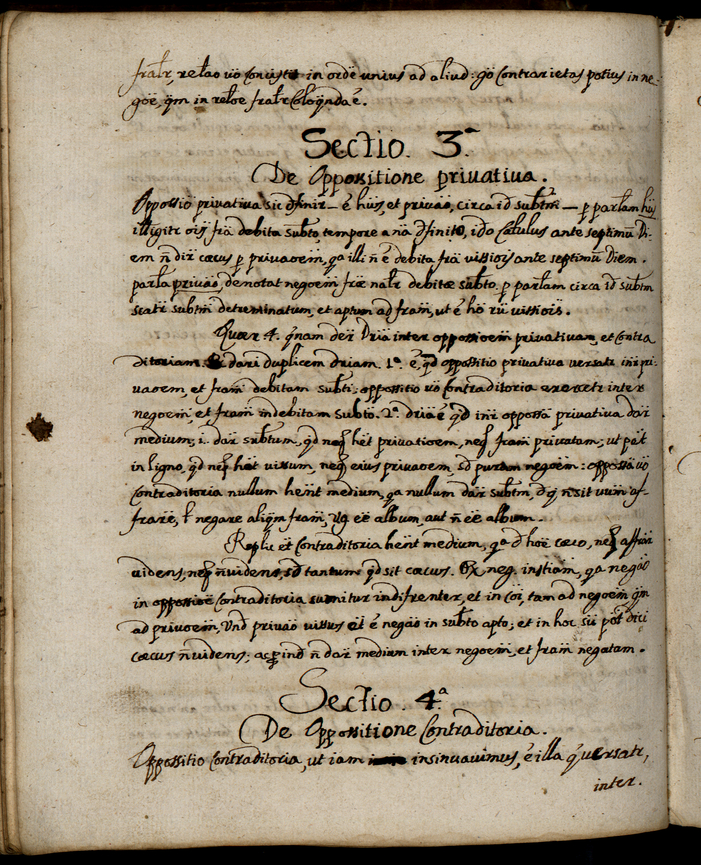 fratr, relao vo consistit in orde unius ad aliud: go Contrarietas potius in ne-
goe, qm in reloe fratr Coloqnda e.
Sectio. 3.ª
De Oppositione privativa.
Oppossio privativa sic dfinir – é hüs, et privao, circa id subtm – p parlam hüs
illigitr ois frã debita subto, tempore a nã dfinito, ido Catulus ante septimũ Di-
em ñ dir cæcus p privaoem, qa illi ñ é debita frã vissiois ante septimũ Diem.
parla privao, denotat negoem fræ natr debitæ subto. p parlam circa id subtm
statr subtm determinatum, et aptum ad fram, ut é ho rũ vissiois.
Quær 4. qnam der Dria inter oppossioem privativam, et Contra
ditoriam. dari duplicem driam. 1.ª é, qd oppossitio privativa versatr intr pri-
vaoem, et fram debitam subti; oppossitio vo Contraditoria exercetr inter
negoem, et fram indebitam subto. 2.ª dria é qd intr oppossa privativa dar
medium; i. dar subtum, qd neq het privatioem, neq fram privatam; ut pat
in ligno, qd neq het vissum, neq eius privaoem, sd puram negoem: opposita vo
Contraditoria nullum hent medium, qa nullum dar subtm, d q ñ sit vum af-
frare, t negare aliqm fram, Vg eé album, aut ñ eé album.
Replic et Contraditoria hent medium, qa d hoe cæco, neq affrar
videns, neq ñ videns, sd tantum qd sit cæcus. Rx neg. instiam, qa negao
in oppossioe Contraditoria sumitur indifrenter, et in Coi, tam ad negoem qm
ad privoem, Und privao vissus et é negao in subto apto; et in hoc sũ pot dici
cæcus ñ videns; ac pind ñ dar medium inter negoem, et fram negatam.
Sectio. 4.ª
De Oppositione Contraditoria.
Oppossitio Contraditoria, ut iam insinuavimus, é illa q versatr,
inter.